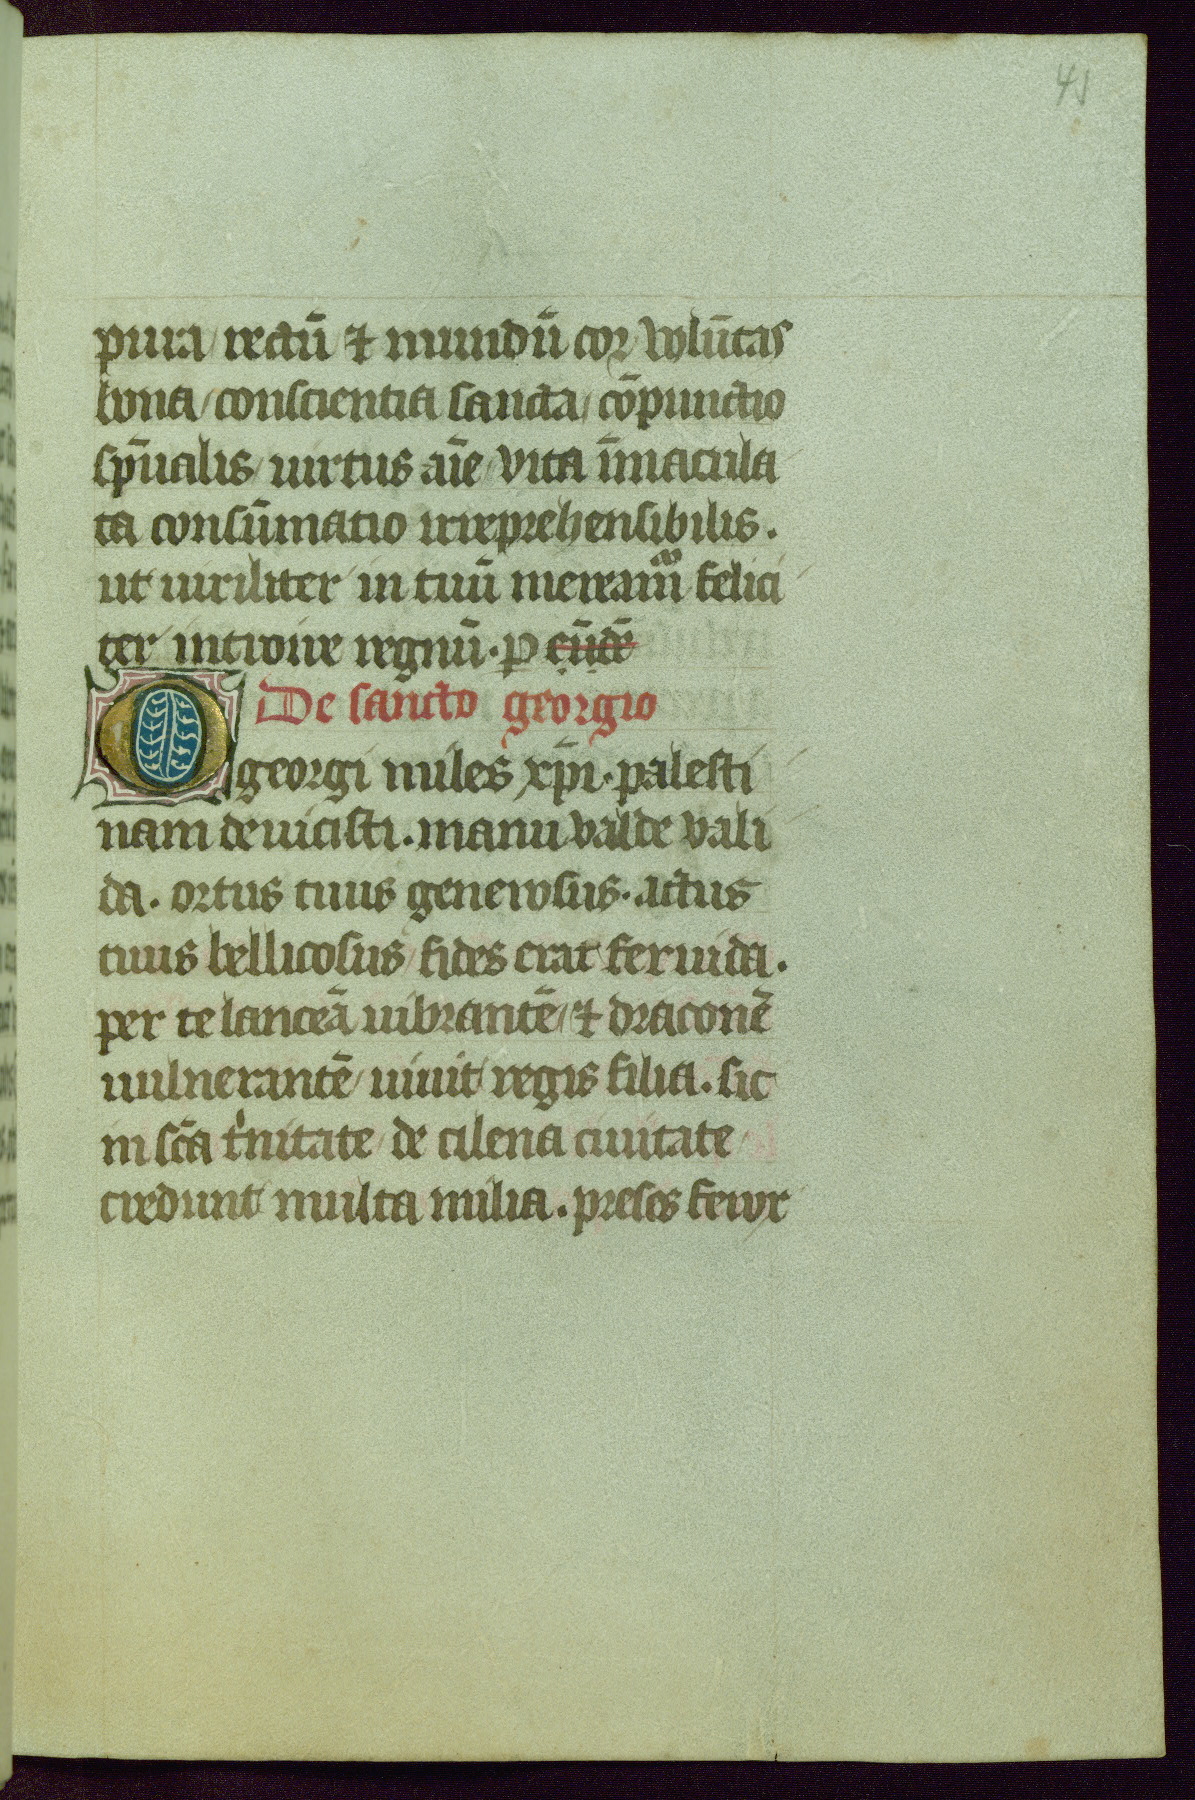 41
pura / rectū ⁊ mundū cor / volūtas
bona / conscientia sancta / cōpunctio
spūalis / uirtus aīe / vita īmacula
ta consūmatio irreprehensibilis.
ut uiriliter in tuū merear felici
ter introire regnū. p eūdē
De sancto georgio
O georgi miles xp̄i. palesti
nam deuicisti. manu valde vali
da. ortus tuus generosus. actus
tuus bellicosus / fides erat feruida.
per te lanceā uibrantē / ⁊ draconē
uulnerantē / uiuit regis filia. sic
in scā trinitate / de cilena ciuitate /
credunt multa milia. preses ferox